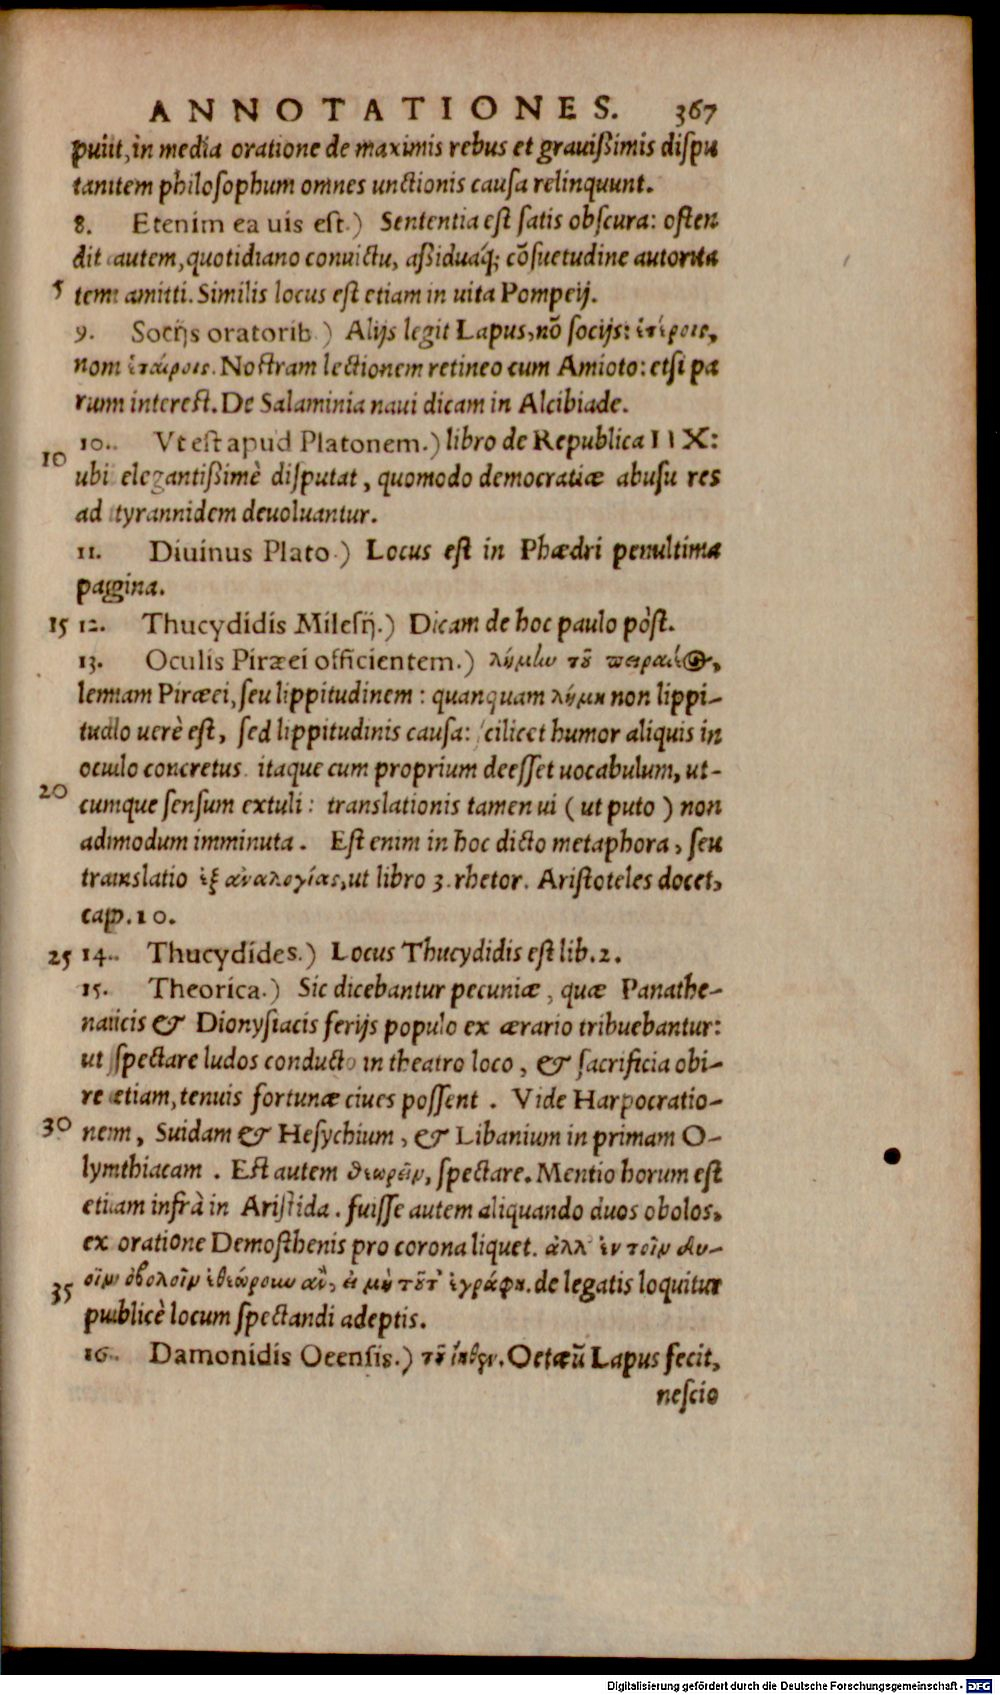 ANNOTATIONES. 367
puiit, in media oratione de maximis rebus et grauißimis dispu
tantem philosophum omnes unctionis causa relinquunt.
8. Etenim ea uis est.) Sententia est satis obscura: osten
dit autem, quotidiano conuictu, aßiduaq́; cōsuetudine autorita
5 tem amitti. Similis locus est etiam in uita Pompeij.
9. Socijs oratorib.) Alijs legit Lapus, nō socijs: ἑτέροις,
non ἑταίροις. Nostram lectionem retineo cum Amioto: etsi pa
rum interest. De Salaminia naui dicam in Alcibiade.
10 10. Vt est apud Platonem.) libro de Republica IIX:
ubi elegantißimè disputat, quomodo democratiæ abusu res
ad tyrannidem deuoluantur.
11. Diuinus Plato.) Locus est in Phædri penultima
pagina.
15 12. Thucydidis Milesij.) Dicam de hoc paulo pòst.
13. Oculis Piræei officientem.) λήμην τοῦ πειραιέως,
lemam Piræei, seu lippitudinem: quanquam λήμη non lippi-
tudo uerè est, sed lippitudinis causa: scilicet humor aliquis in
oculo concretus. itaque cum proprium deesset uocabulum, ut-
20 cumque sensum extuli: translationis tamen ui (ut puto) non
admodum imminuta. Est enim in hoc dicto metaphora, seu
translatio ἐξ ἀναλογίας, ut libro 3. rhetor. Aristoteles docet,
cap. 10.
25 14. Thucydides.) Locus Thucydidis est lib. 2.
15. Theorica.) Sic dicebantur pecuniæ, quæ Panathe-
naicis & Dionysiacis ferijs populo ex ærario tribuebantur:
ut spectare ludos conducto in theatro loco, & sacrificia obi-
re etiam, tenuis fortunæ ciues possent. Vide Harpocratio-
30 nem, Suidam & Hesychium, & Libanium in primam O-
lynthiacam. Est autem θεωρεῖν, spectare. Mentio horum est
etiam infrà in Aristida. fuisse autem aliquando duos obolos,
ex oratione Demosthenis pro corona liquet. ἀλλ' ἐν τοῖν δυ-
οῖν ὀβολοῖν ἐθεώρουν ἂν, εἰ μὴ τοῦτ' ἐγράφη. de legatis loquitur
35 publicè locum spectandi adeptis.
16. Damonidis Oeensis.) τοῦ Oetæū Lapus fecit,
nescio
Digitalisierung gefördert durch die Deutsche Forschungsgemeinschaft - DFG